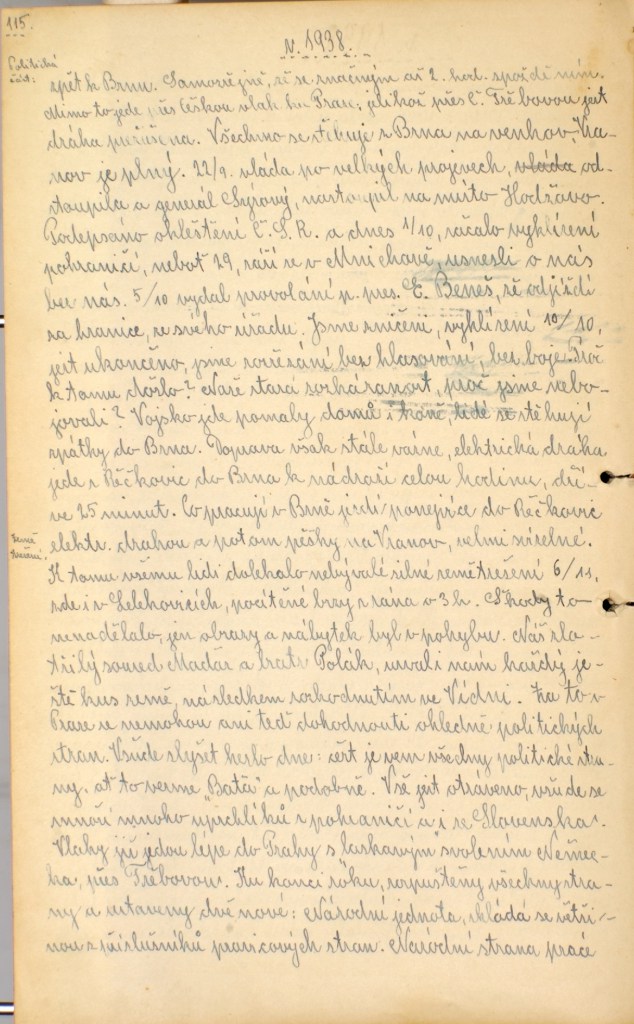 115.
r. 1938.
Politická
část:
zpět k Brnu. Samozřejmě, že se značným až 2. hod. spožděním.
Mimo to jede přes Českou vlak ku Praze; jelikož přes Č. Třebovou jest
dráha přerušena. Všechno se stěhuje z Brna na venkov, Vra-
nov je plný. 22/9. vláda po velkých projevech, vláda od-
stoupila a generál Syrový, nastoupil na místo Hodžovo.
Podepsáno okleštění Č.S.R. a dnes 1/10, začalo vyklízení
pohraničí, neboť 29, září se v Mnichově, usnesli o nás
bez nás. 5/10 vydal provolání p. pres. E. Beneš, že odjíždí
za hranice, ze svého úřadu. Jsme zničeni, vyklízení 10/10,
jest ukončeno, jsme rozřezáni, bez hlasování, bez boje. Proč
k tomu došlo? Naše stará, proč jsme nebo-
jovali? Vojsko jde pomalu domů i koně, lidé se stěhují
zpátky do Brna. Doprava však stále vázne, elektrická dráha
jede z Řečkovic do Brna k nádraží celou hodinu, dří-
ve 25 minut. Co pracují v Brně jezdí ponejvíce do Řečkovic
elektr. drahou a potom pěšky na Vranov, velmi svízelné.
Země
třesení:
K tomu všemu lidi dolekalo nebývalé silné zemětřesení 6/11,
zde i v Lelekovicích, pocítěné brzy z rána o 3 h. Škody to
nenadělalo, jen obrazy a nábytek byl v pohybu. Náš zla-
tílý soused Maďar a bratr Polák, urvali nám každý je-
ště kus země, následkem rozhodnutím ve Vídni. Za to v
Praze se nemohou ani teď dohodnouti ohledně politických
stran. Všude slyšet heslo dne: čert je vem všechny politické stra-
ny, ať to vezme „Baťa" a podobně. Vše jest otráveno, všude se
množí mnoho uprchlíků z pohraničí a i ze Slovenska.
Vlaky již jedou lépe do Prahy s „laskavým" svolením Němec-
ka, přes Třebovou. Ku konci roku, rozpuštěny všechny stra-
ny a ustaveny dvě nové: Národní jednota, skládá se větši-
nou z příslušníků pravicových stran. Národní strana práce